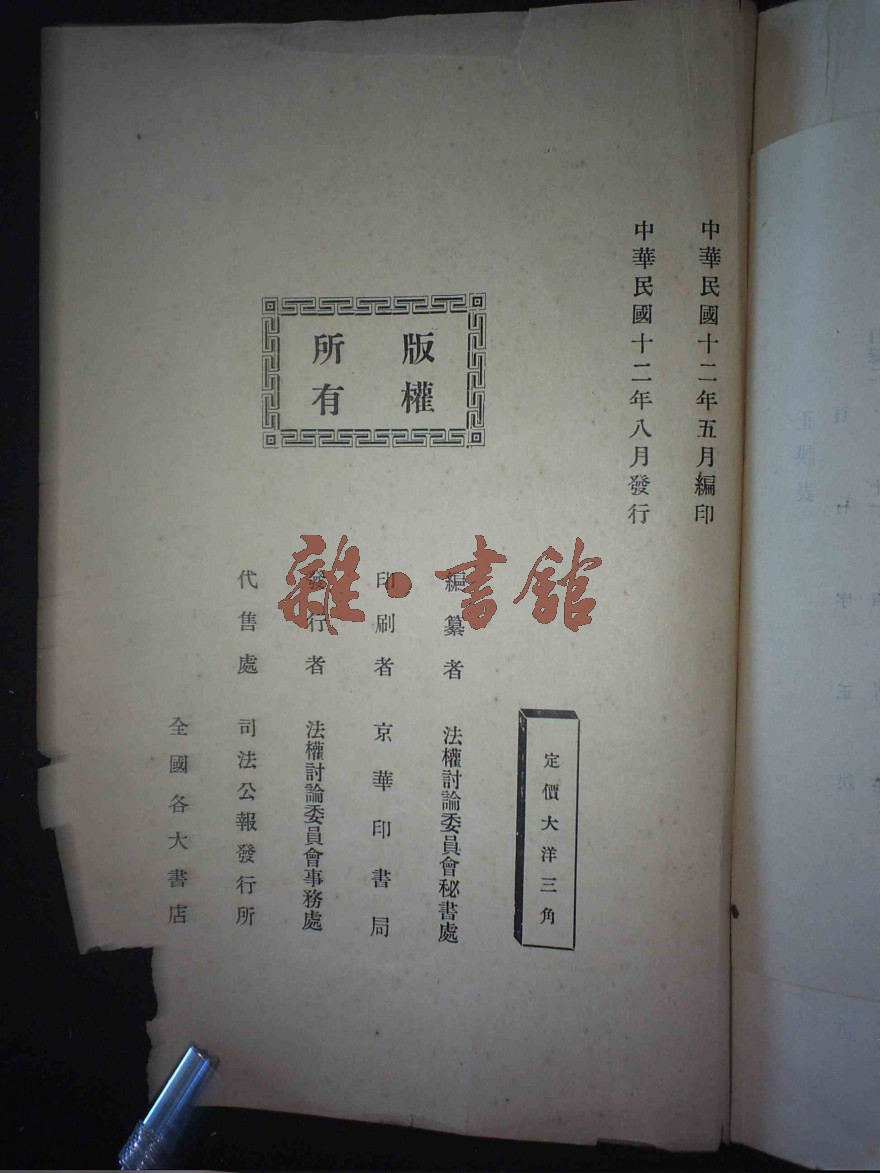 中華民國十二年五月編印
中華民國十二年八月發行
版權
所有
定價大洋三角
編纂者 法權討論委員會秘書處
印刷者 京華印書局
發行者 法權討論委員會事務處
代售處 司法公報發行所
全國各大書店
雜·書館